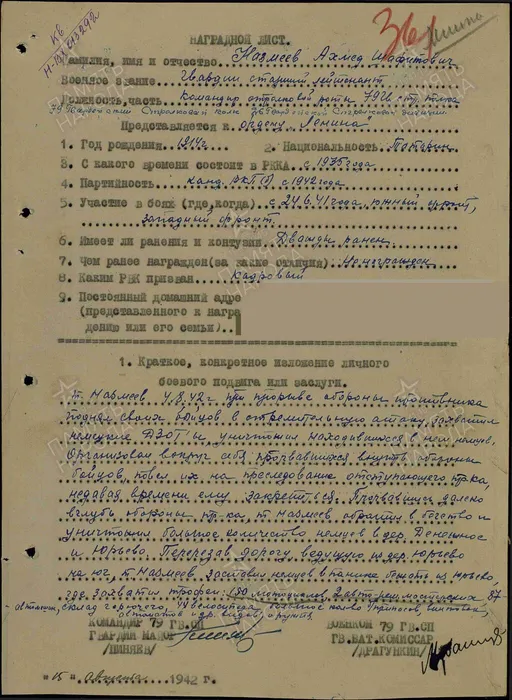 КВ
Н-ВХ 043292
361
НАГРАДНОЙ ЛИСТ.
Фамилия, имя и отчество Назмеев Ахмед Шафитович
Военное звание гвардии старший лейтенант
Должность, часть командир стрелковой роты 79 Гв. стр. полка
1. Год рождения 1914г. 2. Национальность Татарин
Представляется к ордену "Ленина"
3. С какого времени состоит в РККА с 1935 года
4. Партийность канд. ВКП(б) с 1942 года
5. Участие в боях (где, когда) с 24.6.41 года, южный фронт,
западный фронт.
6. Имеет ли ранения и контузии Дважды ранен
7. Чем ранее награжден (за какие отличия) Не награжден
8. Каким РВК призван Кадровый
9. Постоянный домашний адре
(представленного к награ
дению или его семьи)
1. Краткое, конкретное изложение личного
боевого подвига или заслуги.
т. Назмеев 4.8.42г. при прорыве обороны противника
поднял своих бойцов в стремительную атаку, захватил
немецкие ДЗОТ'ы, уничтожил находившихся в нем немцев.
Организовав вокруг себя прорвавшихся внутрь обороны
бойцов, повел их на преследование отступающего пр-ка,
не давая времени ему закрепиться. Прорвавшись далеко
вглубь обороны пр-ка, т. Назмеев обратил в бегство и
уничтожил большое количество немцев в дер.
и Юрьево. Перерезав дорогу, ведущую из дер. Юрьево
на юг, т. Назмеев заставил немцев в панике бежать из Юрьево,
где захватил трофеи: 150 мотоциклов, 2 авто рем. мастерских, 87
автомашин, склад горючего, 44 велосипеда, большое кол-во винтовок,
автоматов и др. видов оружия.
КОМАНДИР 79 ГВ.СП
ГВАРДИИ МАЙОР
/ПИНЯЕВ/
ВОЕНКОМ 79 ГВ.СП
ГВ.БАТ.КОМИССАР
/ДРАГУНКИН/
"15" августа 1942 г.